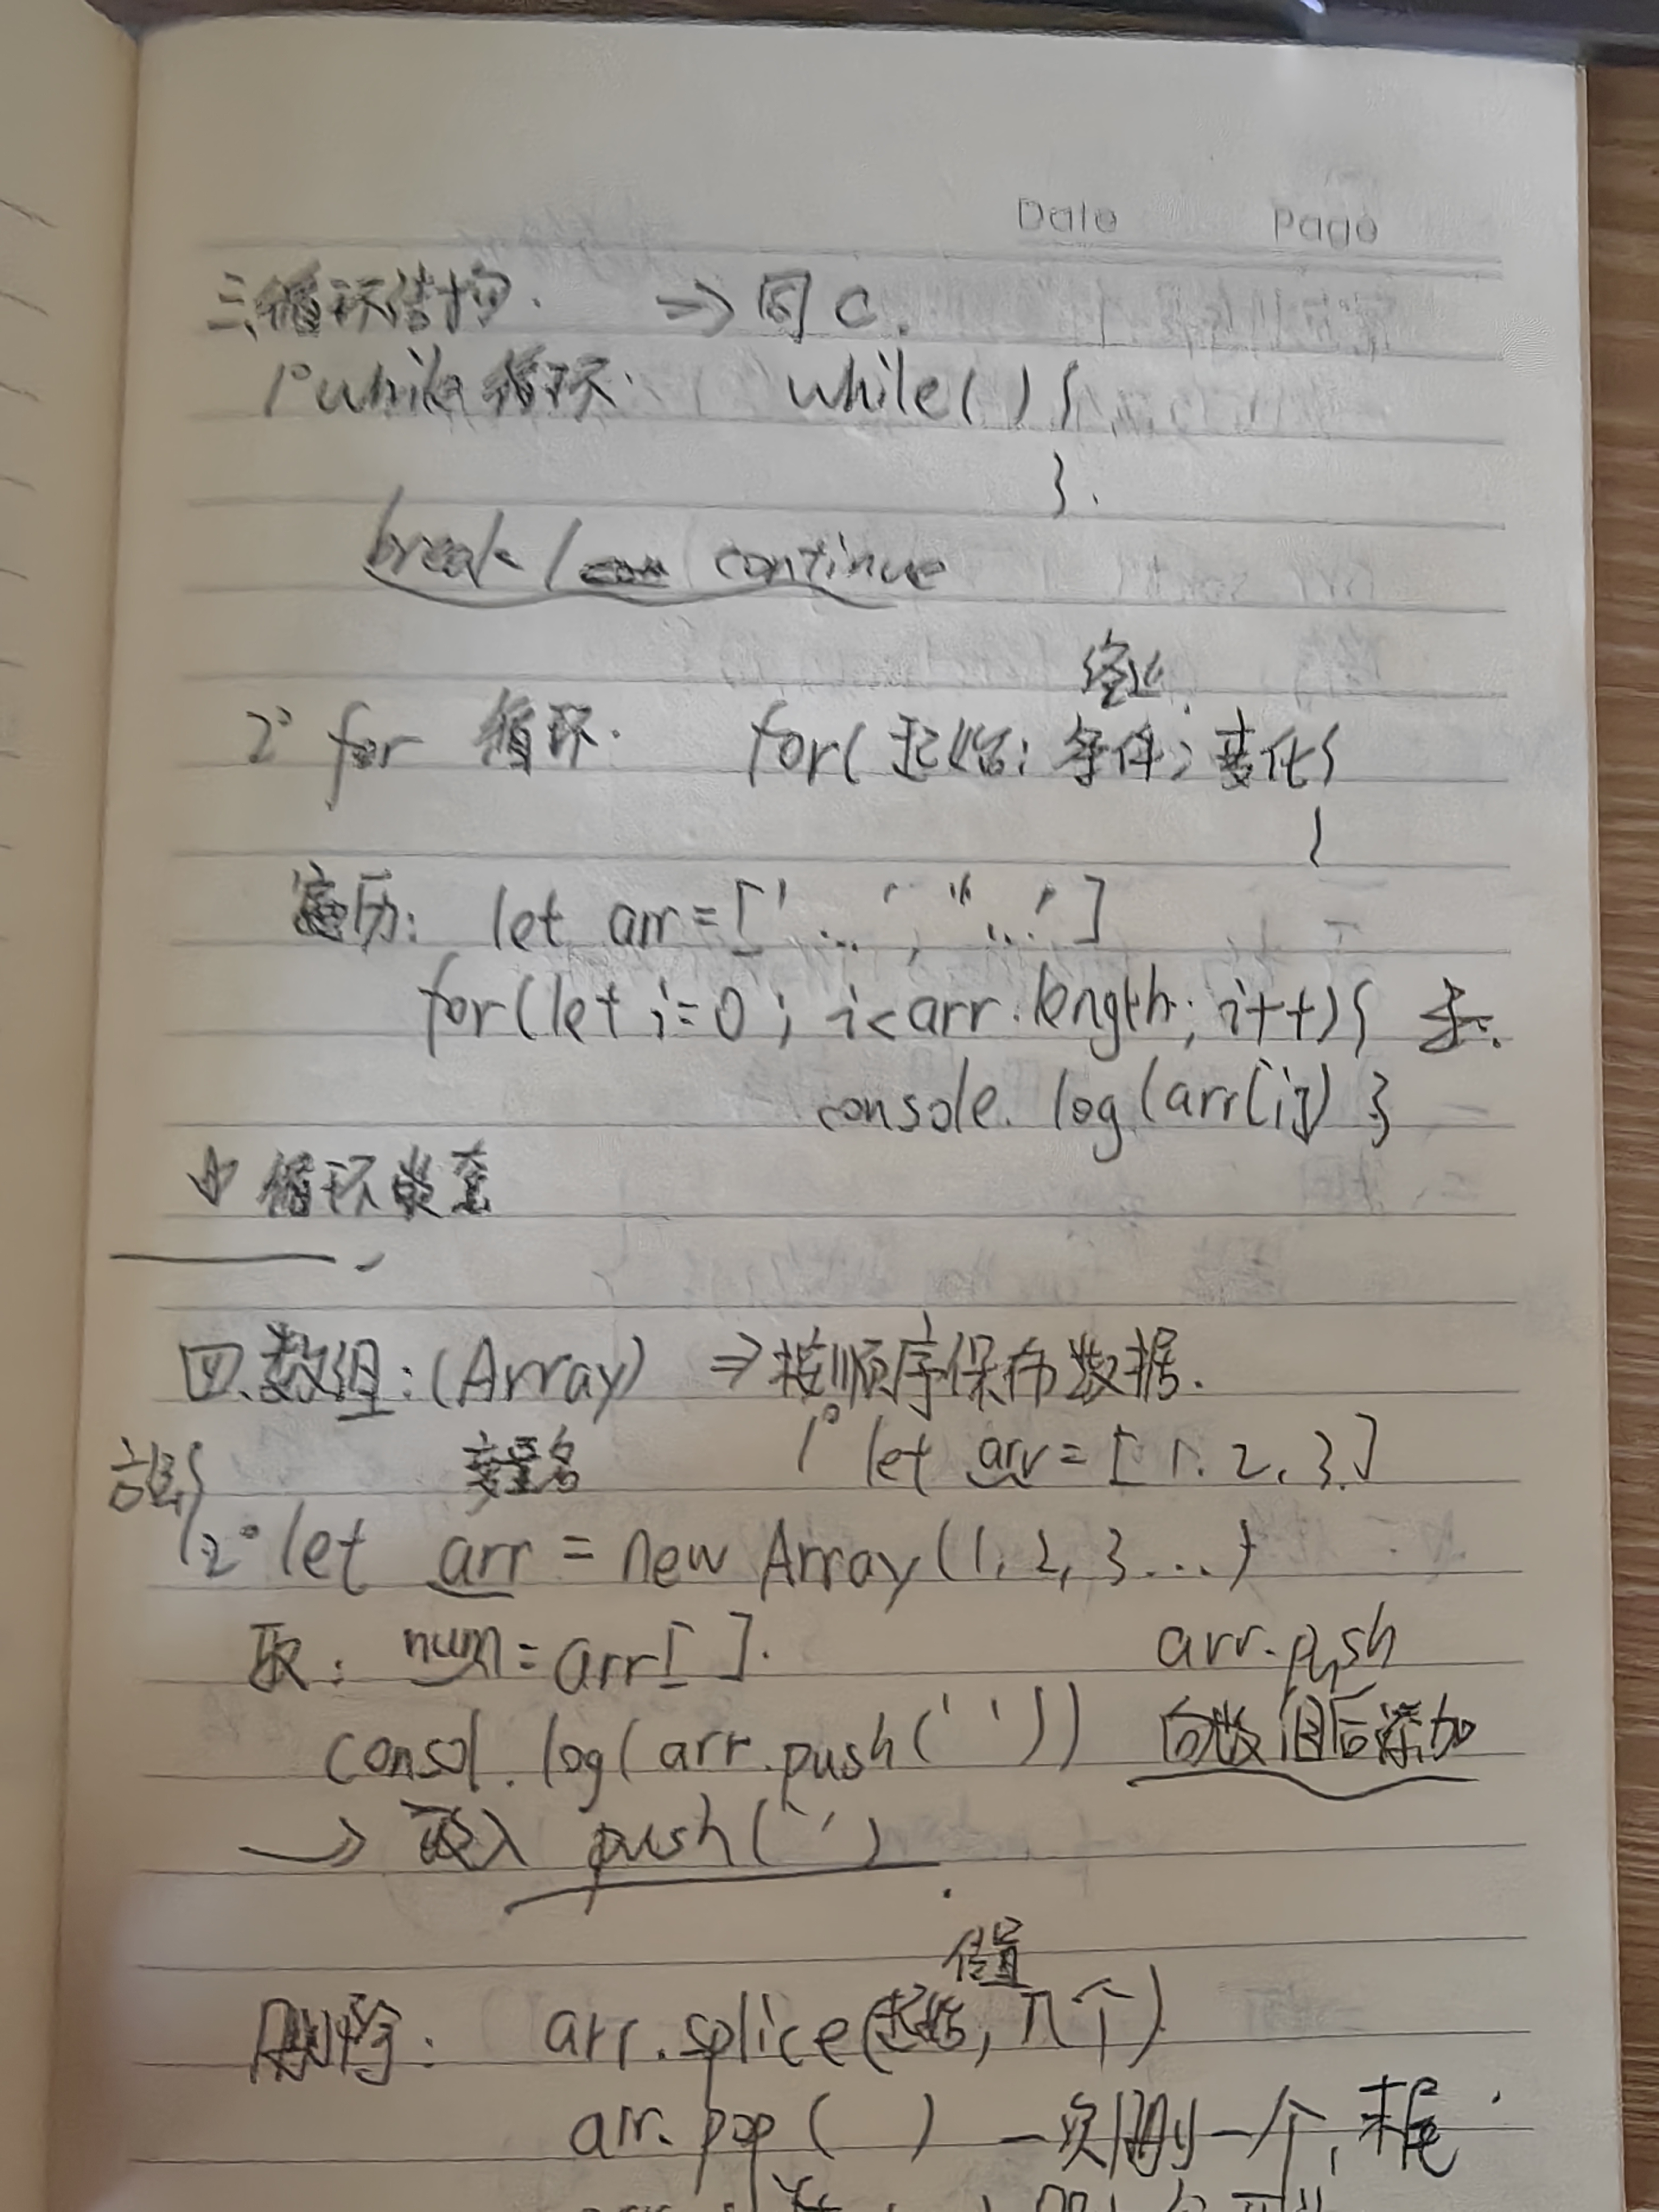 Date Page
三、循环结构. ⇒ 同C.
1° while 循环. while( ) {
}.
break / continue
终止
2° for 循环. for( 起始; 条件; 变化{
}
遍历: let arr = ['...', '...']
for(let i=0; i<arr.length; i++){
console.log(arr[i]) }
循环嵌套
四、数组: (Array) ⇒ 按顺序保存数据.
1° let arr = [1, 2, 3.]
变量名
2° let arr = new Array(1, 2, 3...)
取: num = arr[ ].
arr.push
consol.log(arr.push(' ')) 向数组后添加
→ 嵌入 push(' ')
位置
删除: arr.splice(起始, 几个)
arr.pop( ) 一次删一个, 末尾.